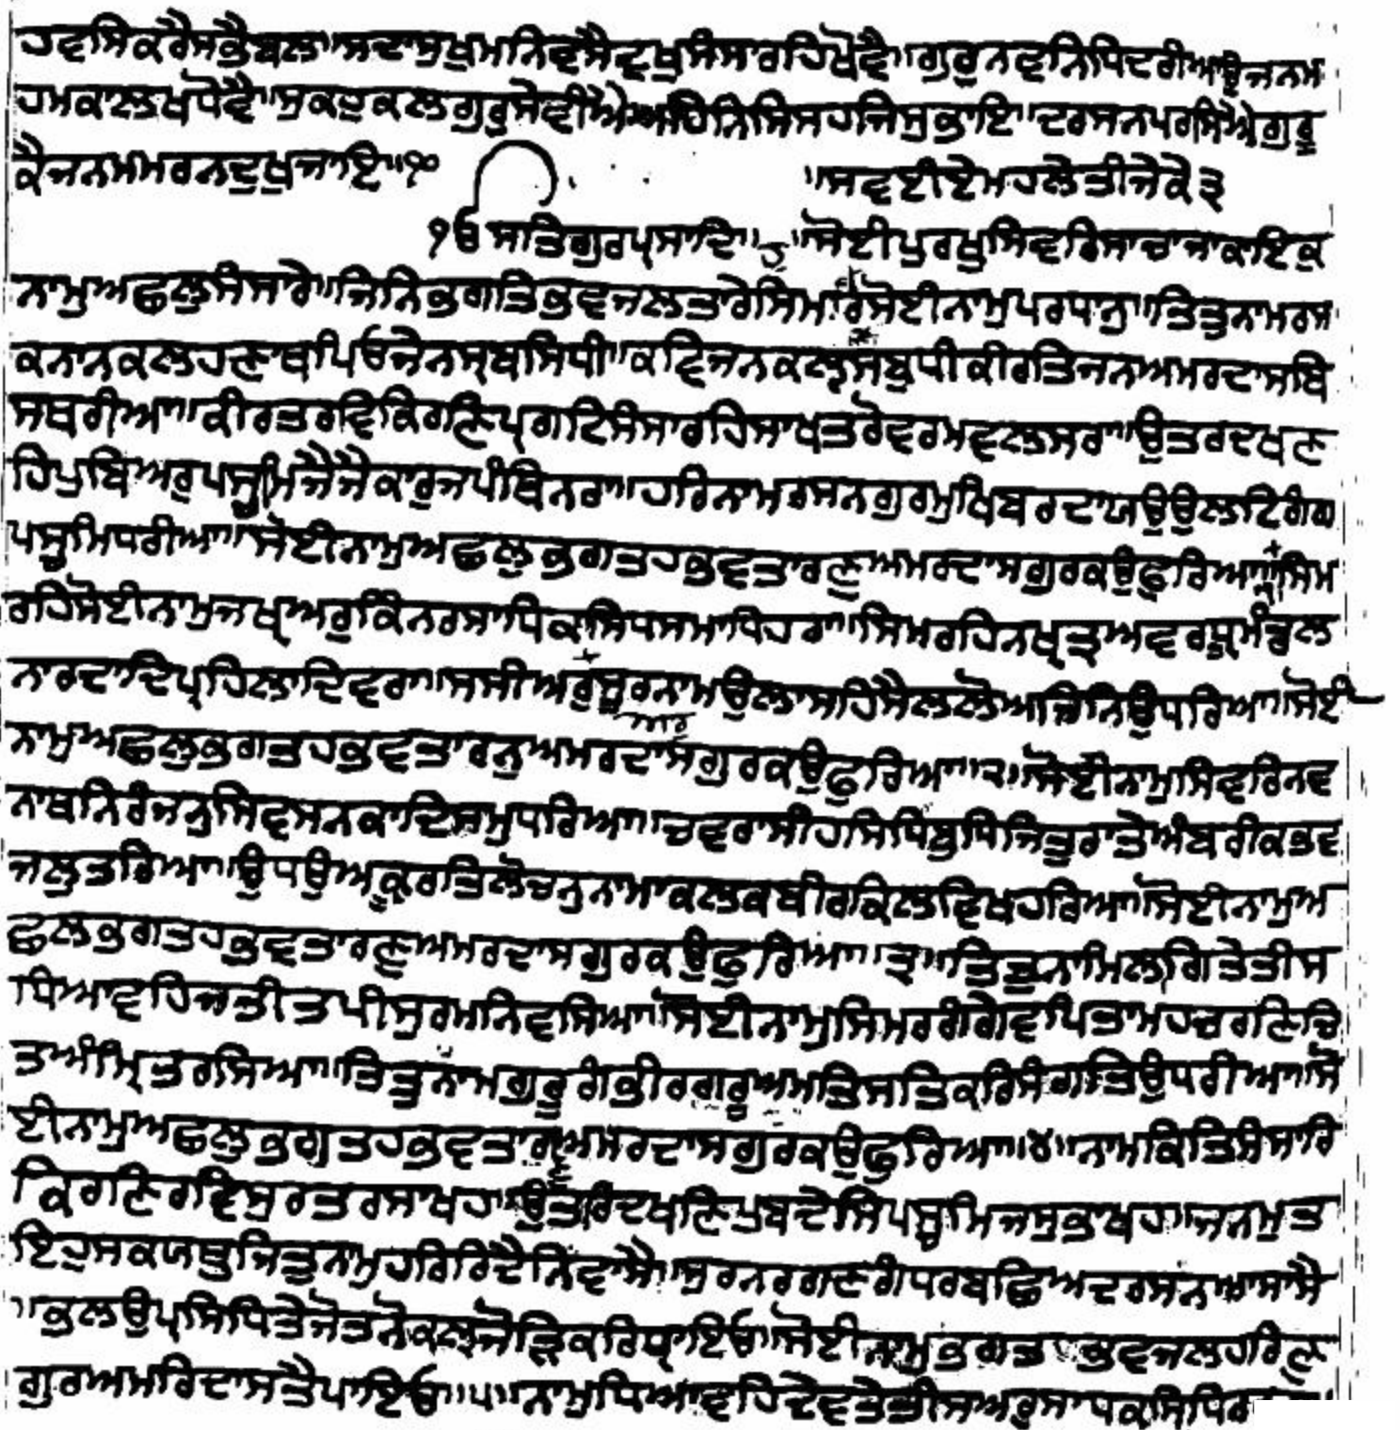 ਹਵਸਿਕਰੈਸਕੈਬਲ॥ਸਦਾਸੁਖੁਮਨਿਵਸੈਦੁਖੁਸੰਸਾਰਹਿਖੋਵੈ॥ਗੁਰੁਨਵਨਿਧਿਦਰੀਆਉਜਨਮ
ਹਮਕਾਲਖਧੋਵੈ॥ਸੁਕਹੁਕਲਗੁਰੁਸੇਵੀਐਅਹਿਨਿਸਿਸਹਜਿਸੁਭਾਇ॥ਦਰਸਨਪਰਸਿਐਗੁਰੂ
ਕੈਜਨਮਮਰਨਦੁਖੁਜਾਇ॥੧੦
॥ਸਵਈਏਮਹਲੇਤੀਜੇਕੇ੩
੧ਓਸਤਿਗੁਰਪ੍ਰਸਾਦਿ॥ ॥ਸੋਈਪੁਰਖੁਸਿਵਰਿਸਾਚਾਜਾਕਾਇਕੁ
ਨਾਮੁਅਛਲੁਸੰਸਾਰੇ॥ਜਿਨਿਭਗਤਿਭਵਜਲਤਾਰੇਸਿਮਰਿਸੋਈਨਾਮੁਪਰਧਾਨੁ॥ਤਿਤੁਨਾਮਰਸ
ਕਨਾਨਕਲਹਣਾਥਪਿਓਜੇਨਸ੍ਰਬਸਿਧੀ॥ਕਵਿਜਨਕਲ੍ਯਸਬੁਧੀਕੀਰਤਿਜਨਅਮਰਦਾਸਬਿ
ਸਥਰੀਆ॥ਕੀਰਤਰਵਿਕਿਰਣਿਪ੍ਰਗਟਿਸੰਸਾਰਹਿਸਾਖਤਰੋਵਰਮਵਲਸਰਾ॥ਉਤਰਦਖਣ
ਹਿਪੁਬਿਅਰੁਪਸ੍ਚਮਿਜੈਜੈਕਾਰੁਜਪੰਥਿਨਰਾ॥ਹਰਿਨਾਮਰਸਨਗੁਰਮੁਖਿਬਰਦਾਯਉਉਲਟਿਗੰਗ
ਪਸ੍ਚਮਿਧਰੀਆ॥ਸੋਈਨਾਮੁਅਛਲੁਭਗਤਹਭਵਤਾਰਣੁਅਮਰਦਾਸਗੁਰਕਉਫੁਰਿਆ॥੧॥ਸਿਮ
ਰਹਿਸੋਈਨਾਮੁਜਖ੍ਯਅਰੁਕਿੰਨਰਸਾਧਿਕਸਿਧਸਮਾਧਿਹਰਾ॥ਸਿਮਰਹਿਨਖ੍ਯਤ੍ਰਅਵਰਧ੍ਰੂਮੰਡਲ
ਨਾਰਦਾਦਿਪ੍ਰਹਿਲਾਦਿਵਰਾ॥ਸਸੀਅਰੁਸੂਰਨਾਮਉਲਾਸਹਿਸੈਲਲੋਅਜਿਨਿਉਧਰਿਆ॥ਸੋਈ
ਨਾਮੁਅਛਲੁਭਗਤਹਭਵਤਾਰਨੁਅਮਰਦਾਸਗੁਰਕਉਫੁਰਿਆ॥੨॥ਸੋਈਨਾਮੁਸਿਵਰਿਨਵ
ਨਾਥਨਿਰੰਜਨੁਸਿਵਸਨਕਾਦਿਸਮੁਧਰਿਆ॥ਚਵਰਾਸੀਹਸਿਧਿਬੁਧਿਜਿਤੁਰਾਤੇਅੰਬਰੀਕਭਵ
ਜਲੁਤਰਿਆ॥ਉਧਉਅਕ੍ਰੂਰਤਿਲੋਚਨੁਨਾਮਾਕਲਕਬੀਰਕਿਲਵਿਖਹਰਿਆ॥ਸੋਈਨਾਮੁਅ
ਛਲਭਗਤਹਭਵਤਾਰਣੁਅਮਰਦਾਸਗੁਰਕਉਫੁਰਿਆ॥੩॥ਤਿਤੁਨਾਮਿਲਾਗਿਤੇਤੀਸ
ਧਿਆਵਹਿਜਤੀਤਪੀਸੁਰਮਨਿਵਸਿਆ॥ਸੋਈਨਾਮੁਸਿਮਰਗੰਗੇਵਪਿਤਾਮਹਚਰਣਿਚਿ
ਤਅੰਮ੍ਰਿਤਰਸਿਆ॥ਤਿਤੁਨਾਮਗੁਰੂਗੰਭੀਰਗਰੂਅਮਤਿਸਤਿਕਰਿਸੰਗਤਿਉਧਰੀਆ॥ਸੋ
ਈਨਾਮੁਅਛਲੁਭਗਤਹਭਵਤਾਰਣੁਅਮਰਦਾਸਗੁਰਕਉਫੁਰਿਆ॥੪॥ਨਾਮਕਿਤਿਸੰਸਾਰਿ
ਕਿਰਣਿਰਵਿਸੁਰਤਰਸਾਖਹ॥ਉਤਰਿਦਖਣਿਪੁਬਦੇਸਿਪਸ੍ਚਮਿਜਸੁਭਾਖਹ॥ਜਨਮੁਤ
ਇਹੁਸਕਯਥੁਜਿਤੁਨਾਮੁਹਰਿਰਿਦੈਨਿਵਾਸੈ॥ਸੁਰਨਰਗਣਗੰਧਰਬਛਿਅਦਰਸਨਆਸਾਸੈ
॥ਕੁਲਉਪ੍ਰਸਿਧਿਤੇਜੋਤਨੋਕਲ੍ਯਜੋੜਿਕਰਿਧ੍ਯਾਇਓ॥ਸੋਈਨਾਮੁਭਗਤ ਭਵਜਲਹਰਿਣੁ
ਗੁਰਅਮਰਿਦਾਸਤੈਪਾਇਓ॥੫॥ਨਾਮੁਧਿਆਵਹਿਦੇਵਤੇਤੀਸਅਰੁਸਾਧਕਸਿਧਿਨ